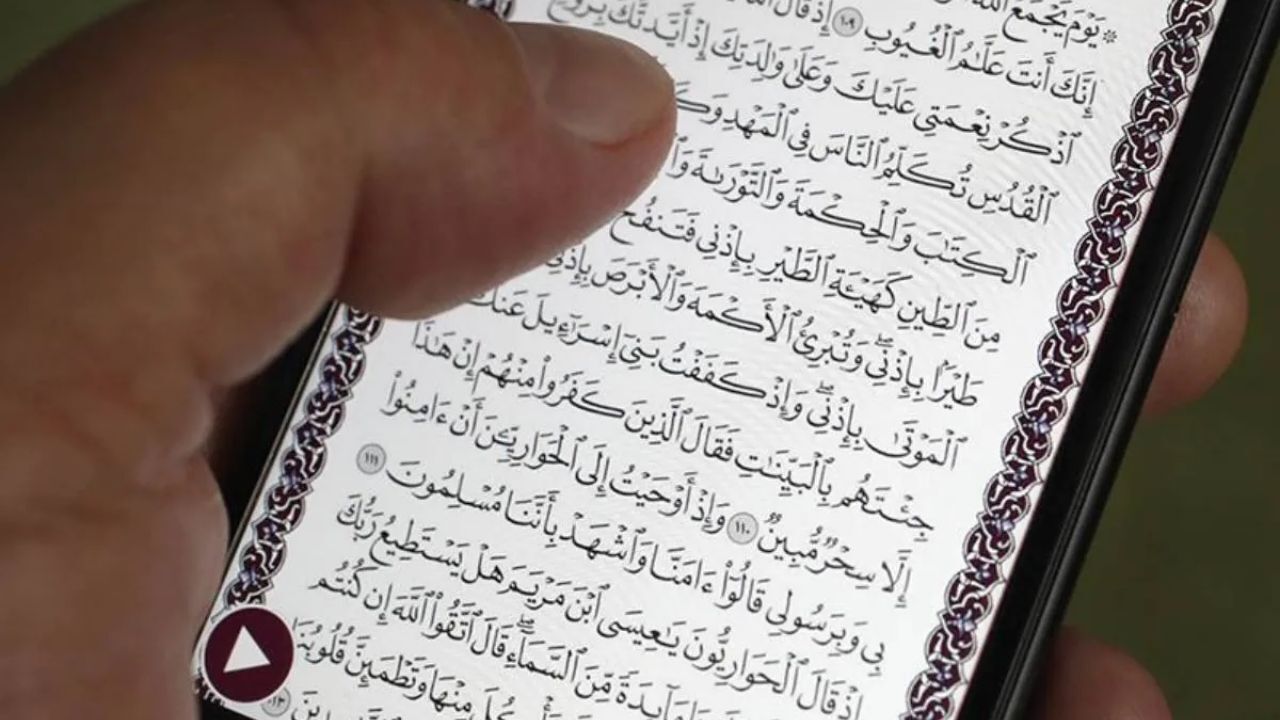 ۞ يَوْمَ يَجْمَعُ ٱللَّهُ
إِنَّكَ أَنتَ عَلَّٰمُ ٱلْغُيُوبِ ١٠٩ إِذْ قَالَ ٱللَّهُ
ٱذْكُرْ نِعْمَتِى عَلَيْكَ وَعَلَىٰ وَٰلِدَتِكَ إِذْ أَيَّدتُّكَ بِرُوحِ
ٱلْقُدُسِ تُكَلِّمُ ٱلنَّاسَ فِى ٱلْمَهْدِ
ٱلْكِتَٰبَ وَٱلْحِكْمَةَ وَٱلتَّوْرَىٰةَ
مِنَ ٱلطِّينِ كَهَيْـَٔةِ ٱلطَّيْرِ بِإِذْنِى فَتَنفُخُ
طَيْرًۢا بِإِذْنِى ۖ وَتُبْرِئُ ٱلْأَكْمَهَ وَٱلْأَبْرَصَ بِإِذْنِى
ٱلْمَوْتَىٰ بِإِذْنِى ۖ وَإِذْ كَفَفْتُ بَنِىٓ إِسْرَٰٓءِيلَ عَنكَ
جِئْتَهُم بِٱلْبَيِّنَٰتِ فَقَالَ ٱلَّذِينَ كَفَرُوا۟ مِنْهُمْ إِنْ هَٰذَآ
إِلَّا سِحْرٌ مُّبِينٌ ١١٠ وَإِذْ أَوْحَيْتُ إِلَى ٱلْحَوَارِيِّـۧنَ أَنْ ءَامِنُوا۟
بِى وَبِرَسُولِى قَالُوٓا۟ ءَامَنَّا وَٱشْهَدْ بِأَنَّنَا مُسْلِمُونَ ١١١
إِذْ قَالَ ٱلْحَوَارِيُّونَ يَٰعِيسَى ٱبْنَ مَرْيَمَ هَلْ يَسْتَطِيعُ رَبُّكَ
مَآئِدَةً مِّنَ ٱلسَّمَآءِ ۖ قَالَ ٱتَّقُوا۟ ٱللَّهَ إِن كُنتُم
مِنْهَا وَتَطْمَئِنَّ قُلُوبُنَا